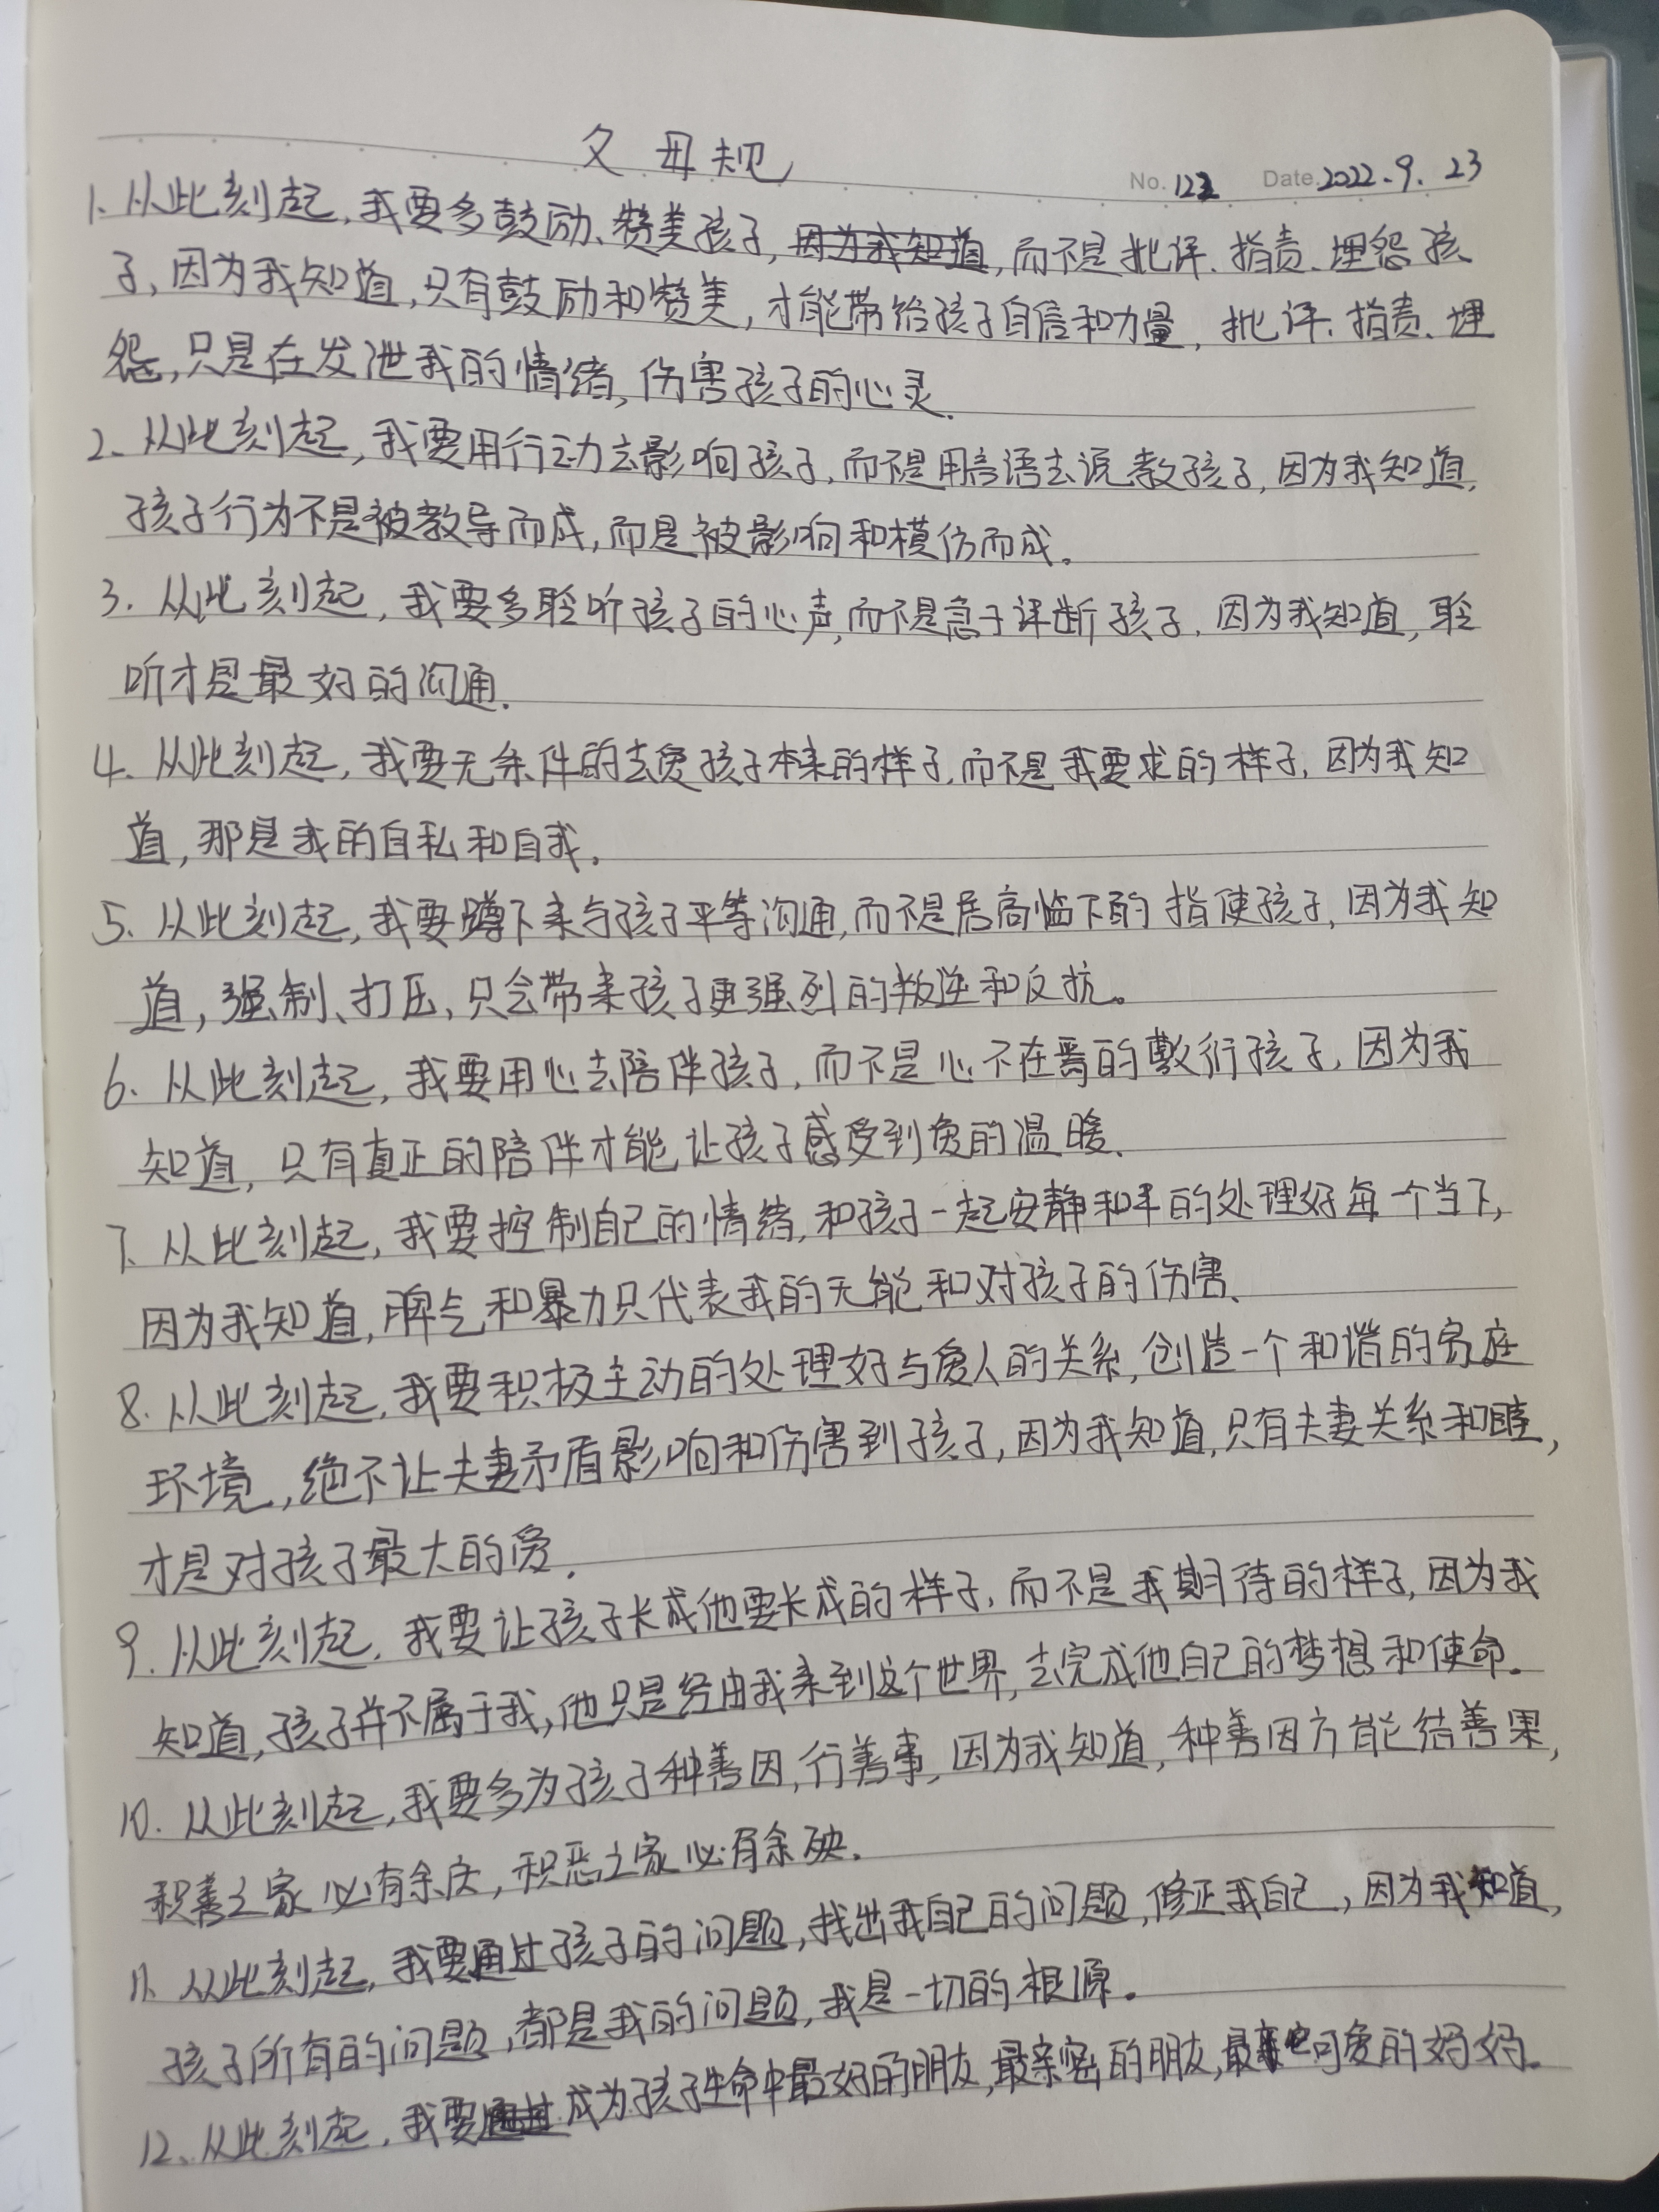 父母规
No. 122 Date. 2022.9.23
1. 从此刻起,我要多鼓励、赞美孩子,因为我知道,而不是批评、指责、埋怨孩
子,因为我知道,只有鼓励和赞美,才能带给孩子自信和力量,批评、指责、埋
怨,只是在发泄我的情绪,伤害孩子的心灵.
2、从此刻起,我要用行动去影响孩子,而不是用言语去说教孩子,因为我知道,
孩子行为不是被教导而成,而是被影响和模仿而成。
3. 从此刻起,我要多聆听孩子的心声,而不是急于评断孩子,因为我知道,聆
听才是最好的沟通.
4. 从此刻起,我要无条件的去爱孩子本来的样子,而不是我要求的样子,因为我知
道,那是我的自私和自我.
5. 从此刻起,我要蹲下来与孩子平等沟通,而不是居高临下的指使孩子,因为我知
道,强制、打压,只会带来孩子更强烈的叛逆和反抗。
6. 从此刻起,我要用心去陪伴孩子,而不是心不在焉的敷衍孩子,因为我
知道,只有真正的陪伴才能让孩子感受到爱的温暖.
7、从此刻起,我要控制自己的情绪,和孩子一起安静和平的处理好每一个当下,
因为我知道,脾气和暴力只代表我的无能和对孩子的伤害、
8. 从此刻起,我要积极主动的处理好与爱人的关系,创造一个和谐的家庭
环境,绝不让夫妻矛盾影响和伤害到孩子,因为我知道,只有夫妻关系和睦,
才是对孩子最大的爱.
9. 从此刻起,我要让孩子长成他要长成的样子,而不是我期待的样子,因为我
知道,孩子并不属于我,他只是经由我来到这个世界,去完成他自己的梦想和使命.
10. 从此刻起,我要多为孩子种善因,行善事,因为我知道,种善因方能结善果,
积善之家必有余庆,积恶之家必有余殃.
11、从此刻起,我要通过孩子的问题,找出我自己的问题,修正我自己,因为我知道,
孩子所有的问题,都是我的问题,我是一切的根源.
12、从此刻起,我要通过成为孩子生命中最好的朋友,最亲密的朋友,最可爱的妈妈.